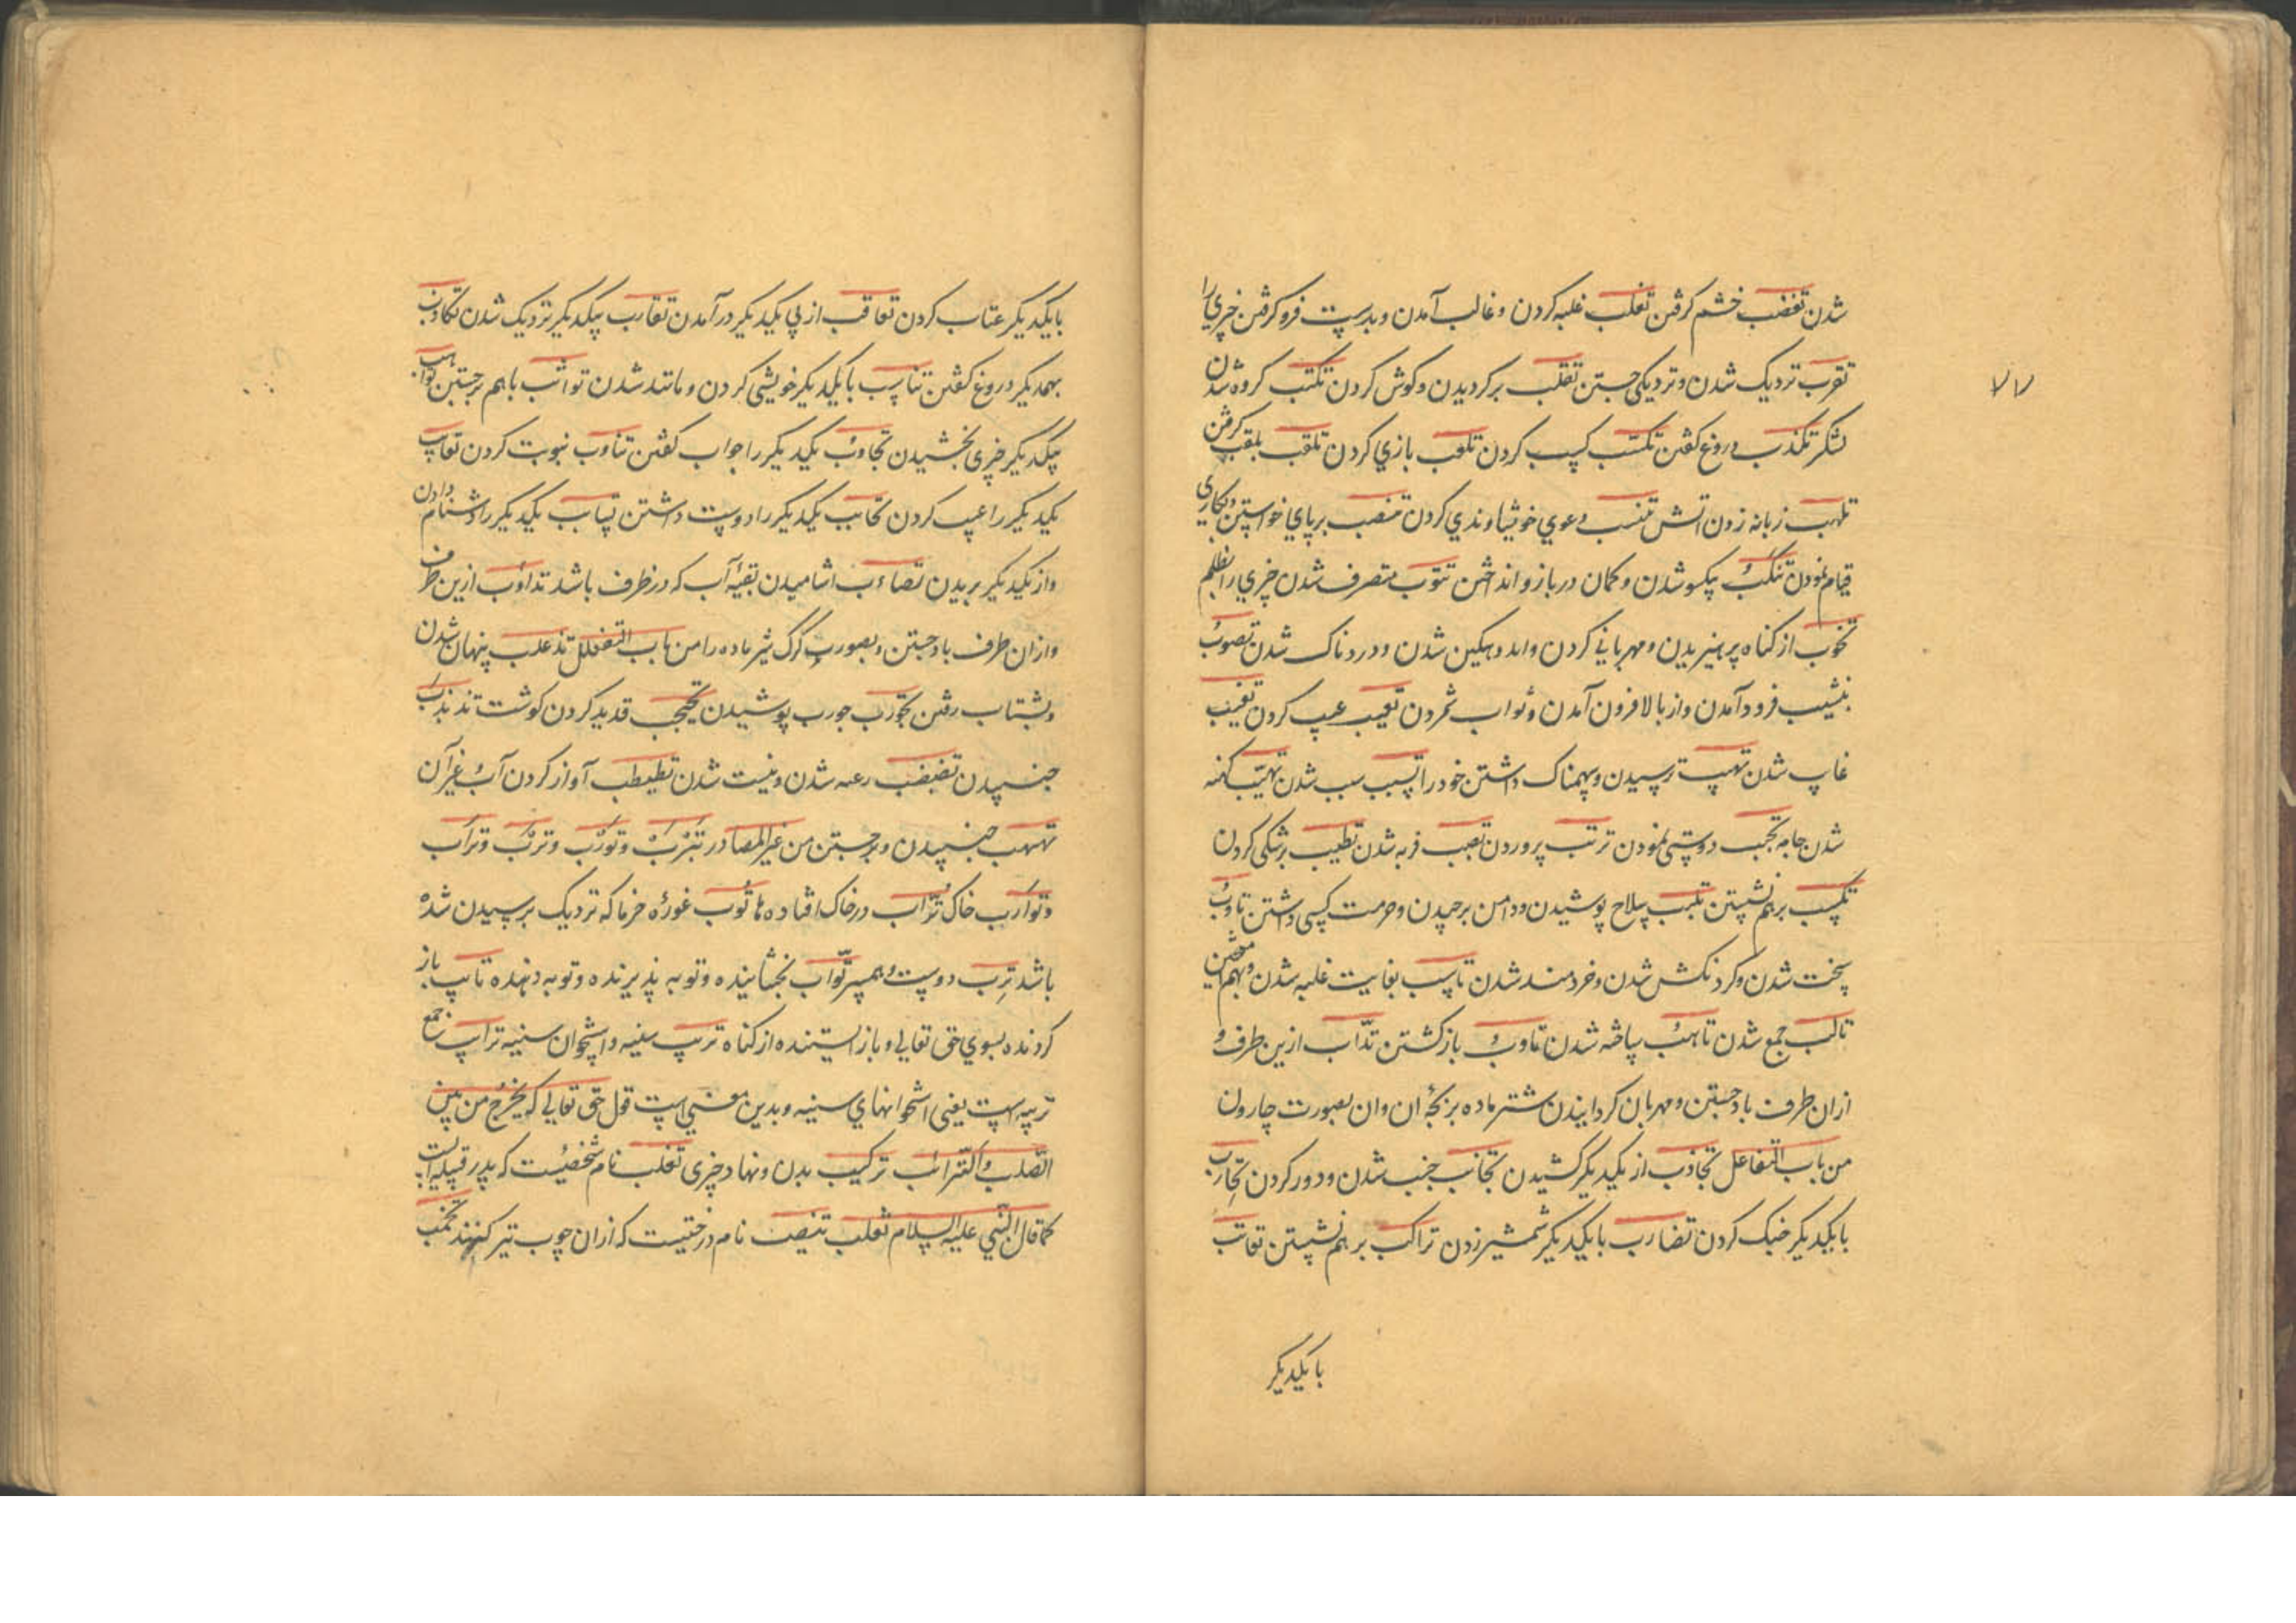 شدن تغضب خشم کرفتن تغلب غلبه کردن و غالب آمدن و بدست فرو کرفتن چیزی را
تقرب نزدیک شدن و نزدیکی جستن تقلب برکردیدن و کوش کردن تکتب کروه شدن
لشکر تکذب دروغ کفتن تکسب کسب کردن تلعب بازي کردن تلقب بلقب کرفتن
تلهب زبانه زدن اتش تنسب دعوي خویشاوندي کردن تنصب برپاي خواستن و بکاری
قیام نمودن تنکب یکسو شدن و کمان در بازو انداختن تنوب متصرف شدن چیزي را بظلم
تحوب از کناه پرهیزیدن و مهرباني کردن و اندوهکین شدن و دردناک شدن تصوب
بنشیب فرود آمدن و از بالا فرون آمدن و ثواب شمردن تعیب عیب کردن تغیب
غایب شدن تهیب ترسیدن و سهمناک داشتن خود را تسبب سبب شدن تهبب کهنه
شدن جامه تحبب دوستی نمودن تربب پروردن تصبب فربه شدن تطبب پزشکی کردن
تکبب برهم نشستن تلبب سلاح پوشیدن و دامن برچیدن و حرمت کسی داشتن تاوب
سخت شدن و کردنکش شدن و خردمند شدن تاسب بغایت غلبه شدن و بهم
تالب جمع شدن تاهب ساخته شدن تاوب بازکشتن تذاب ازین طرف و
ازان طرف باد جستن و مهربان کردانیدن شتر ماده بر بچۀ ان و ان بصورت چارون
من باب التفاعل تجاذب از یکدیکر کشیدن تجانب جنب شدن و دور کردن تحارب
با یکدیکر جنک کردن تضارب با یکدیکر شمشیر زدن تراکب برهم نشستن تعاتب
با یکدیکر
۷۷
با یکدیکر عتاب کردن تعاقب از پی یکدیکر در آمدن تقارب بیکدیکر نزدیک شدن تکاذب
بهمدیکر دروغ کفتن تناسب با یکدیکر خویشی کردن و مانند شدن تواثب باهم برجستن تواهب
بیکدیکر چیزی بخشیدن تجاوب یکدیکر را جواب کفتن تناوب نبوبت کردن تعایب
یکدیکر را عیب کردن تحابب یکدیکر را دوست داشتن تسابب یکدیکر را دشنام دادن
و از یکدیکر بریدن تصاءب اشامیدن بقیۀ آب که در ظرف باشد تذاوب ازین طرف
و ازان طرف باد جستن و بصورت کرک شیر ماده را من باب التفعلل تذعلب پنهان شدن
و بشتاب رفتن تجورب جورب پوشیدن تحبحب قدید کردن کوشت تذبذب
جنبیدن تضبضب رعبه شدن و نیست شدن تطبطب آواز کردن آب و غیر آن
تهبهب جنبیدن و برجستن من غیر المصادر تیرب و تورب و ترب و تراب
و توارب خاک تراب در خاک افتاده ها توب غوره خرما که نزدیک برسیدن شده
باشد ترب دوست و همسر تواب بخشاینده و توبه پذیرنده و توبه دهنده تایب باز
کردنده بسوي حق تعالی و باز ایستنده از کناه تریب سینه و استخوان سینه ترایب جمع
تریبه ست یعنی استخوانهاي سینه و بدین معنی است قول حق تعالي که یخرج من بین
الصلب و الترائب ترکیب بدن و نهاد چیزی تغلب نام شخصیست که پدر قبیله است
کما قال النبي علیه السلام تغلب تنیصب نام درختیست که ازان چوب تیر کنند تخب